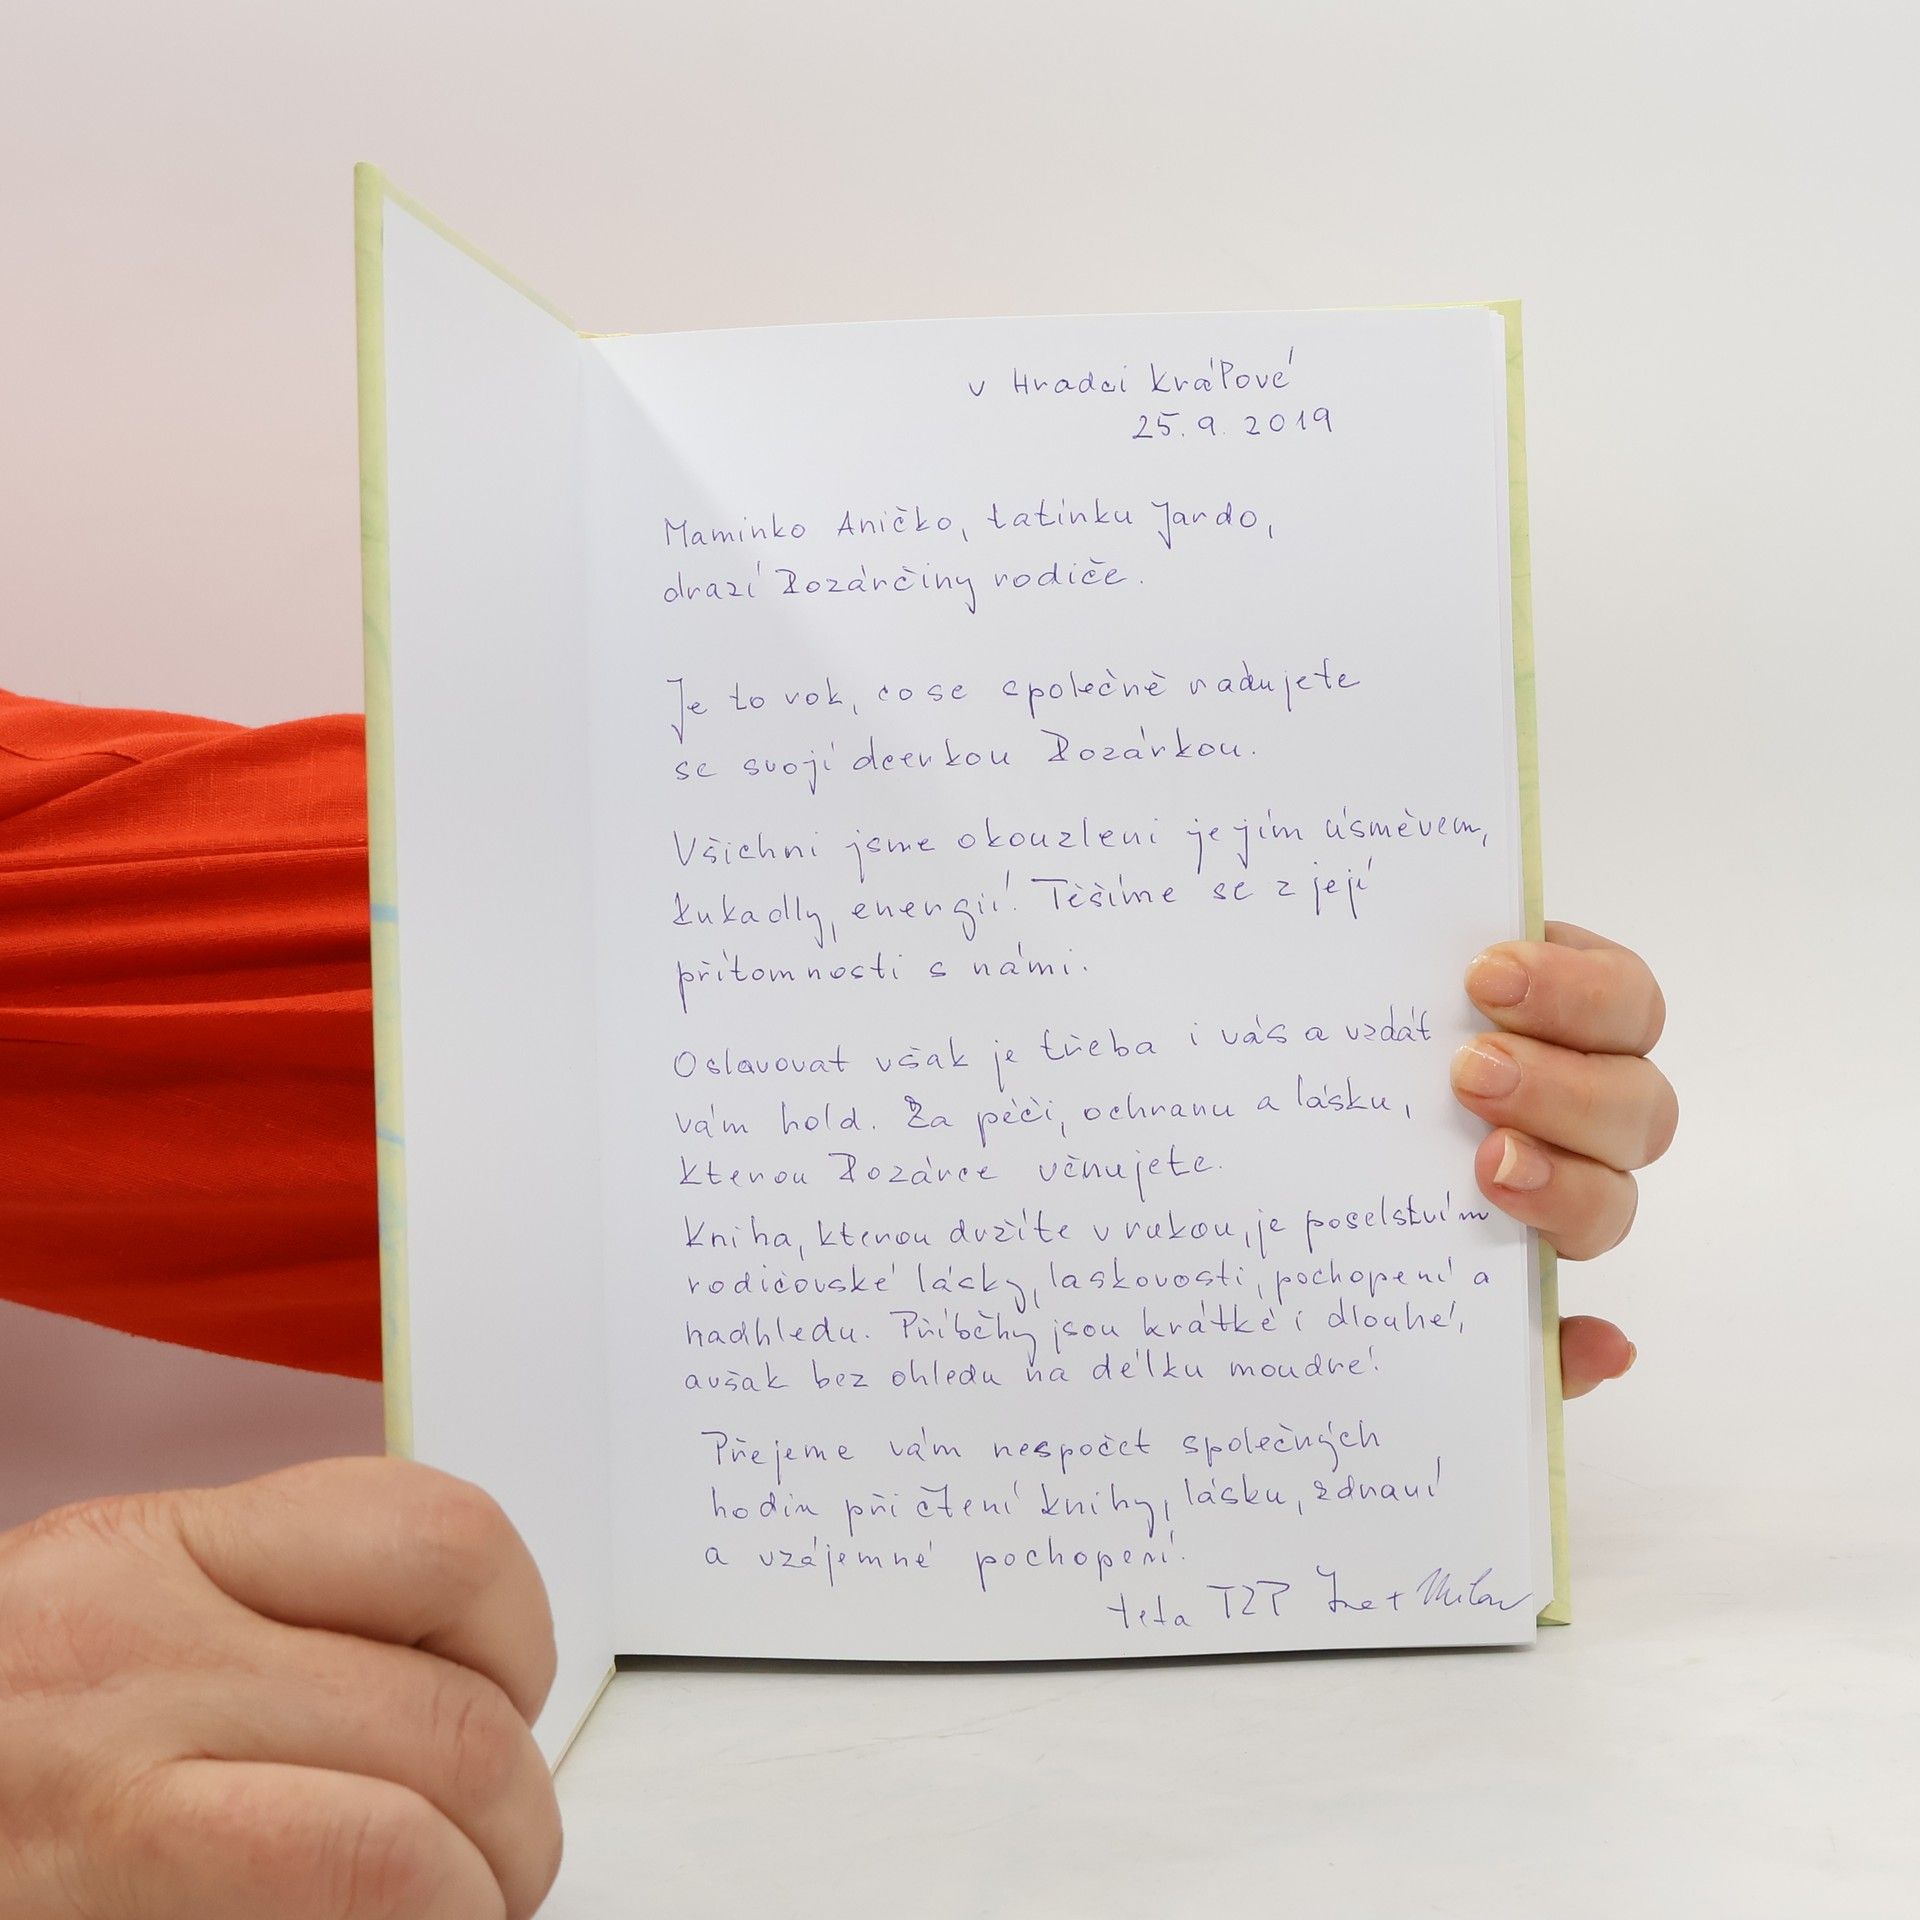 v Hradci Králové
25. 9. 2019
Maminko Aničko, tatínku Jardo,
drazí Rozárčiny rodiče.
Je to rok, co se společně radujete
se svojí dcerkou Rozárkou.
Všichni jsme okouzleni jejím úsměvem,
kukadly, energií! Těšíme se z její
přítomnosti s námi.
Oslavovat však je třeba i vás a vzdát
vám hold. Za péči, ochranu a lásku,
kterou Rozárce věnujete.
Kniha, kterou držíte v rukou, je poselstvím
rodičovské lásky, laskovosti, pochopení a
nadhledu. Příběhy jsou krátké i dlouhé,
avšak bez ohledu na délku moudré!
Přejeme vám nespočet společných
hodin při čtení knihy, lásku, zdraví
a vzájemné pochopení!
teta TZP + Milan